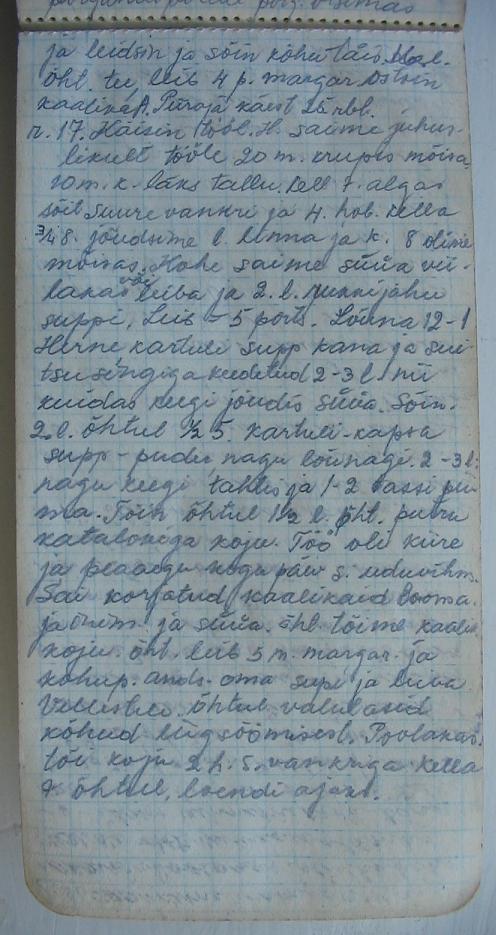 ja leidsin ja sõin kõhu täis. Hal.
õht. tee, leib 4 p. margar. Ostsin
kaalikat A. Piiroja käest 25 rbl.
r. 17. Käisin tööl. H. saime juhus-
likult tööle 20 m. krupis mõisa,
10 m. k. läks tallu. Kell 7. algas
sõit suure vankri ja 4. hob. Kella
3/4 8. jõudsime l. linna ja k. 8 olime
mõisas. Kohe saime süüa vii-
lakas või leiba ja 2. l. jahu
suppi, Leib - 5 ports. Lõuna 12-1
Herne kartuli supp kana ja sui-
tsu singiga keedetud 2-3 l. nii
kuidas keegi jõudis süüa. Sõin.
2. l. õhtul 1/2 5. kartuli-kapsa
supp - pudru, nagu lõunagi. 2-3 l.
nagu keegi tahtis ja 1-2 tassi pii-
ma. Tõin õhtul 1 1/2 l. õht. putru
katelokiga koju. Töö oli kiire
ja peaaegu kogu päev s. uduvihm.
Sai korjatud kaalikaid looma.
ja inim. ja süüa. õhl. tõime kaalik
koju. õht. leib 5 m. margar. ja
kohup. ands. oma supi ja leiva
õhtul valutasid
kõhud liigsöömisest. Poolakas.
tõi koju 2. h. s. vankriga kella
7 õhtul, loendi ajaks.